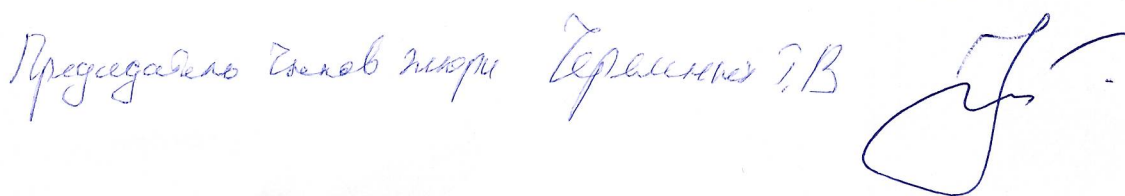 Председатель членов жюри Черемных Т.В